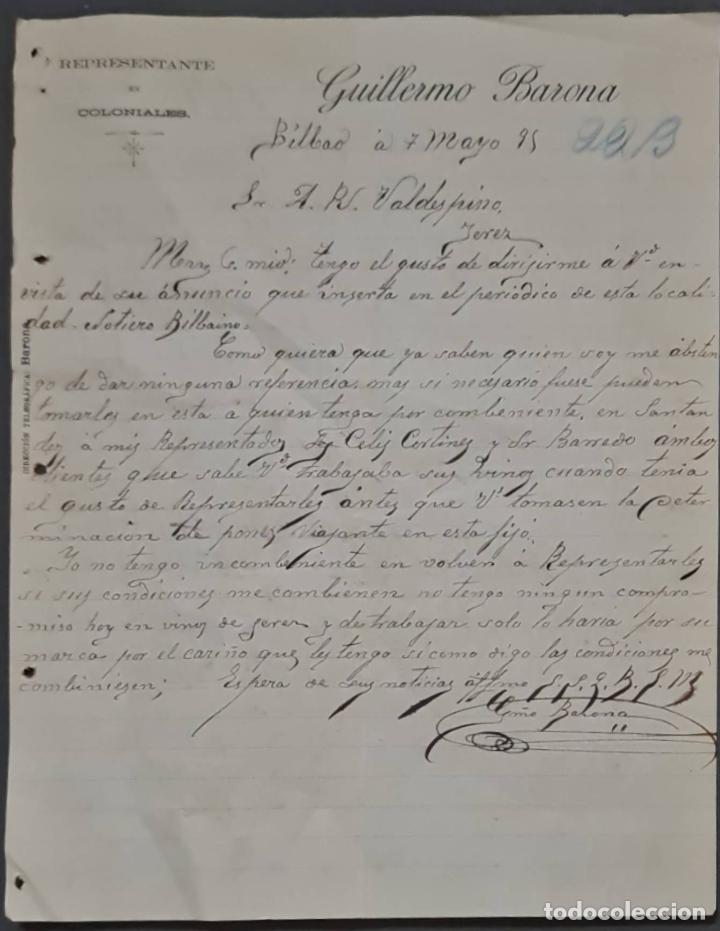 REPRESENTANTE
EN
COLONIALES.
Guillermo Barona
Bilbao á 7 Mayo 95
22B
Sr A. R. Valdespino.
Jerez
Muy S. mio; tengo el gusto de dirijirme á Vd en
vista de su anuncio que inserta en el periódico de esta locali
dad-Notiero Bilbaino.
Como quiera que ya saben quien soy me absten
go de dar ninguna referencia. mas si necesario fuese pueden
tomarles en esta á quien tenga por combeniente. en Santan
der á mis Representados Celis Cortines y Sr Barredo ámbos
clientes que sabe Vd trabajaba sus vinos cuando tenia
el gusto de Representarles ántes que Vs tomasen la deter
minacion de poner Viajante en esta fijo.
Yo no tengo incombeniente en volver á Representarles
si sus condiciones me combienen no tengo ningun compro
-miso hoy en vinos de Jerez y de trabajar solo lo haria por su
marca por el cariño que les tengo si como digo las condiciones me
combiniesen; Espera de sus noticias affmo S. S. Q. B. S. M
Gmo Barona
DIRECCIÓN TELEGRÁFICA: Barona
todocoleccion.net